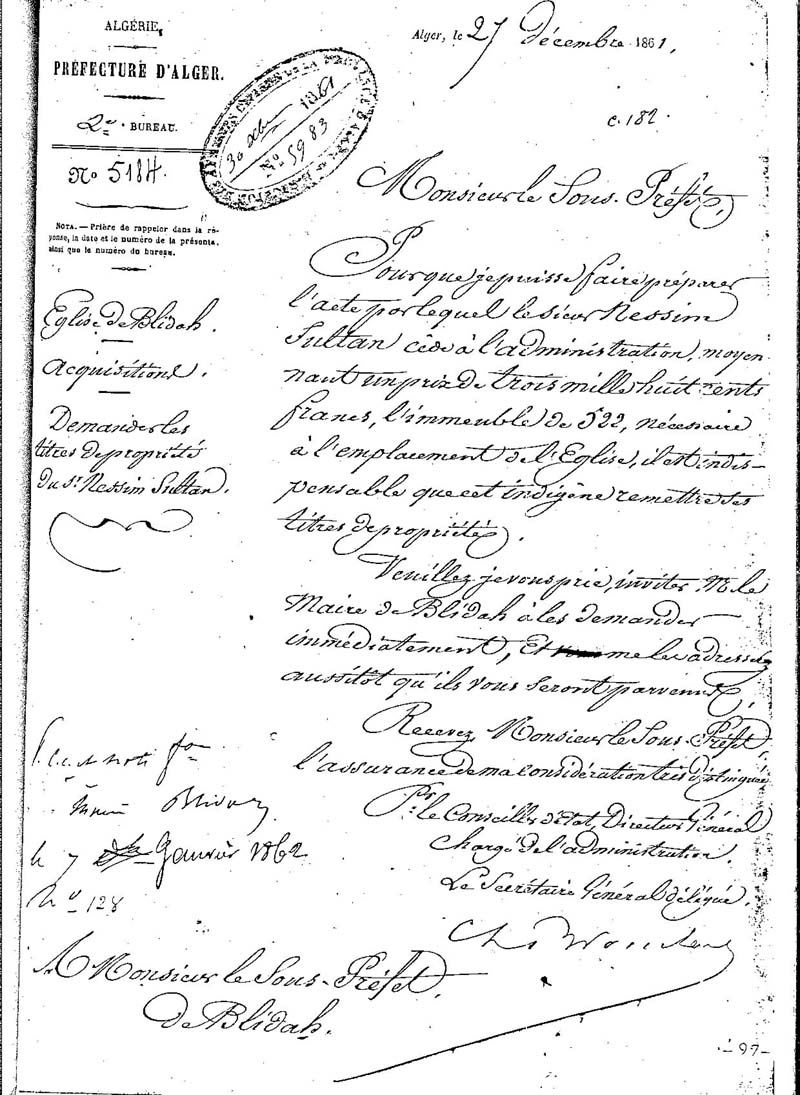 ALGÉRIE,
PRÉFECTURE D'ALGER.
2e BUREAU.
No 5184.
NOTA. — Prière de rappeler dans la ré-
ponse, la date et le numéro de la présente,
ainsi que le numéro du bureau.
30 Xbre 1861
No 5983
Alger, le 27 Décembre 1861,
c. 182
Eglise de Blidah.
Acquisitions.
Demander les
titres de propriété
du Sr. Nessim Sultan.
Monsieur le Sous-Préfet,
Pour que je puisse faire préparer
l'acte par lequel le sieur Nessim
Sultan cède à l'administration, moyen
nant un prix de trois mille huit cents
francs, l'immeuble de 522, nécessaire
à l'emplacement de l'Eglise, il est indis-
pensable que cet indigène remettre ses
titres de propriété.
Veuillez, je vous prie, inviter M. le
Maire de Blidah à les demander
immédiatement, et me les adresser
aussitôt qu'ils vous seront parvenus.
Recevez, Monsieur le Sous-Préfet,
l'assurance de ma considération très distinguée
Pr. le Conseiller d'état, Directeur Général
Chargé de l'administration.
Le Secrétaire Général délégué.
le 7 Janvier 1862
No 128
A Monsieur le Sous-Préfet,
de Blidah.
-97-